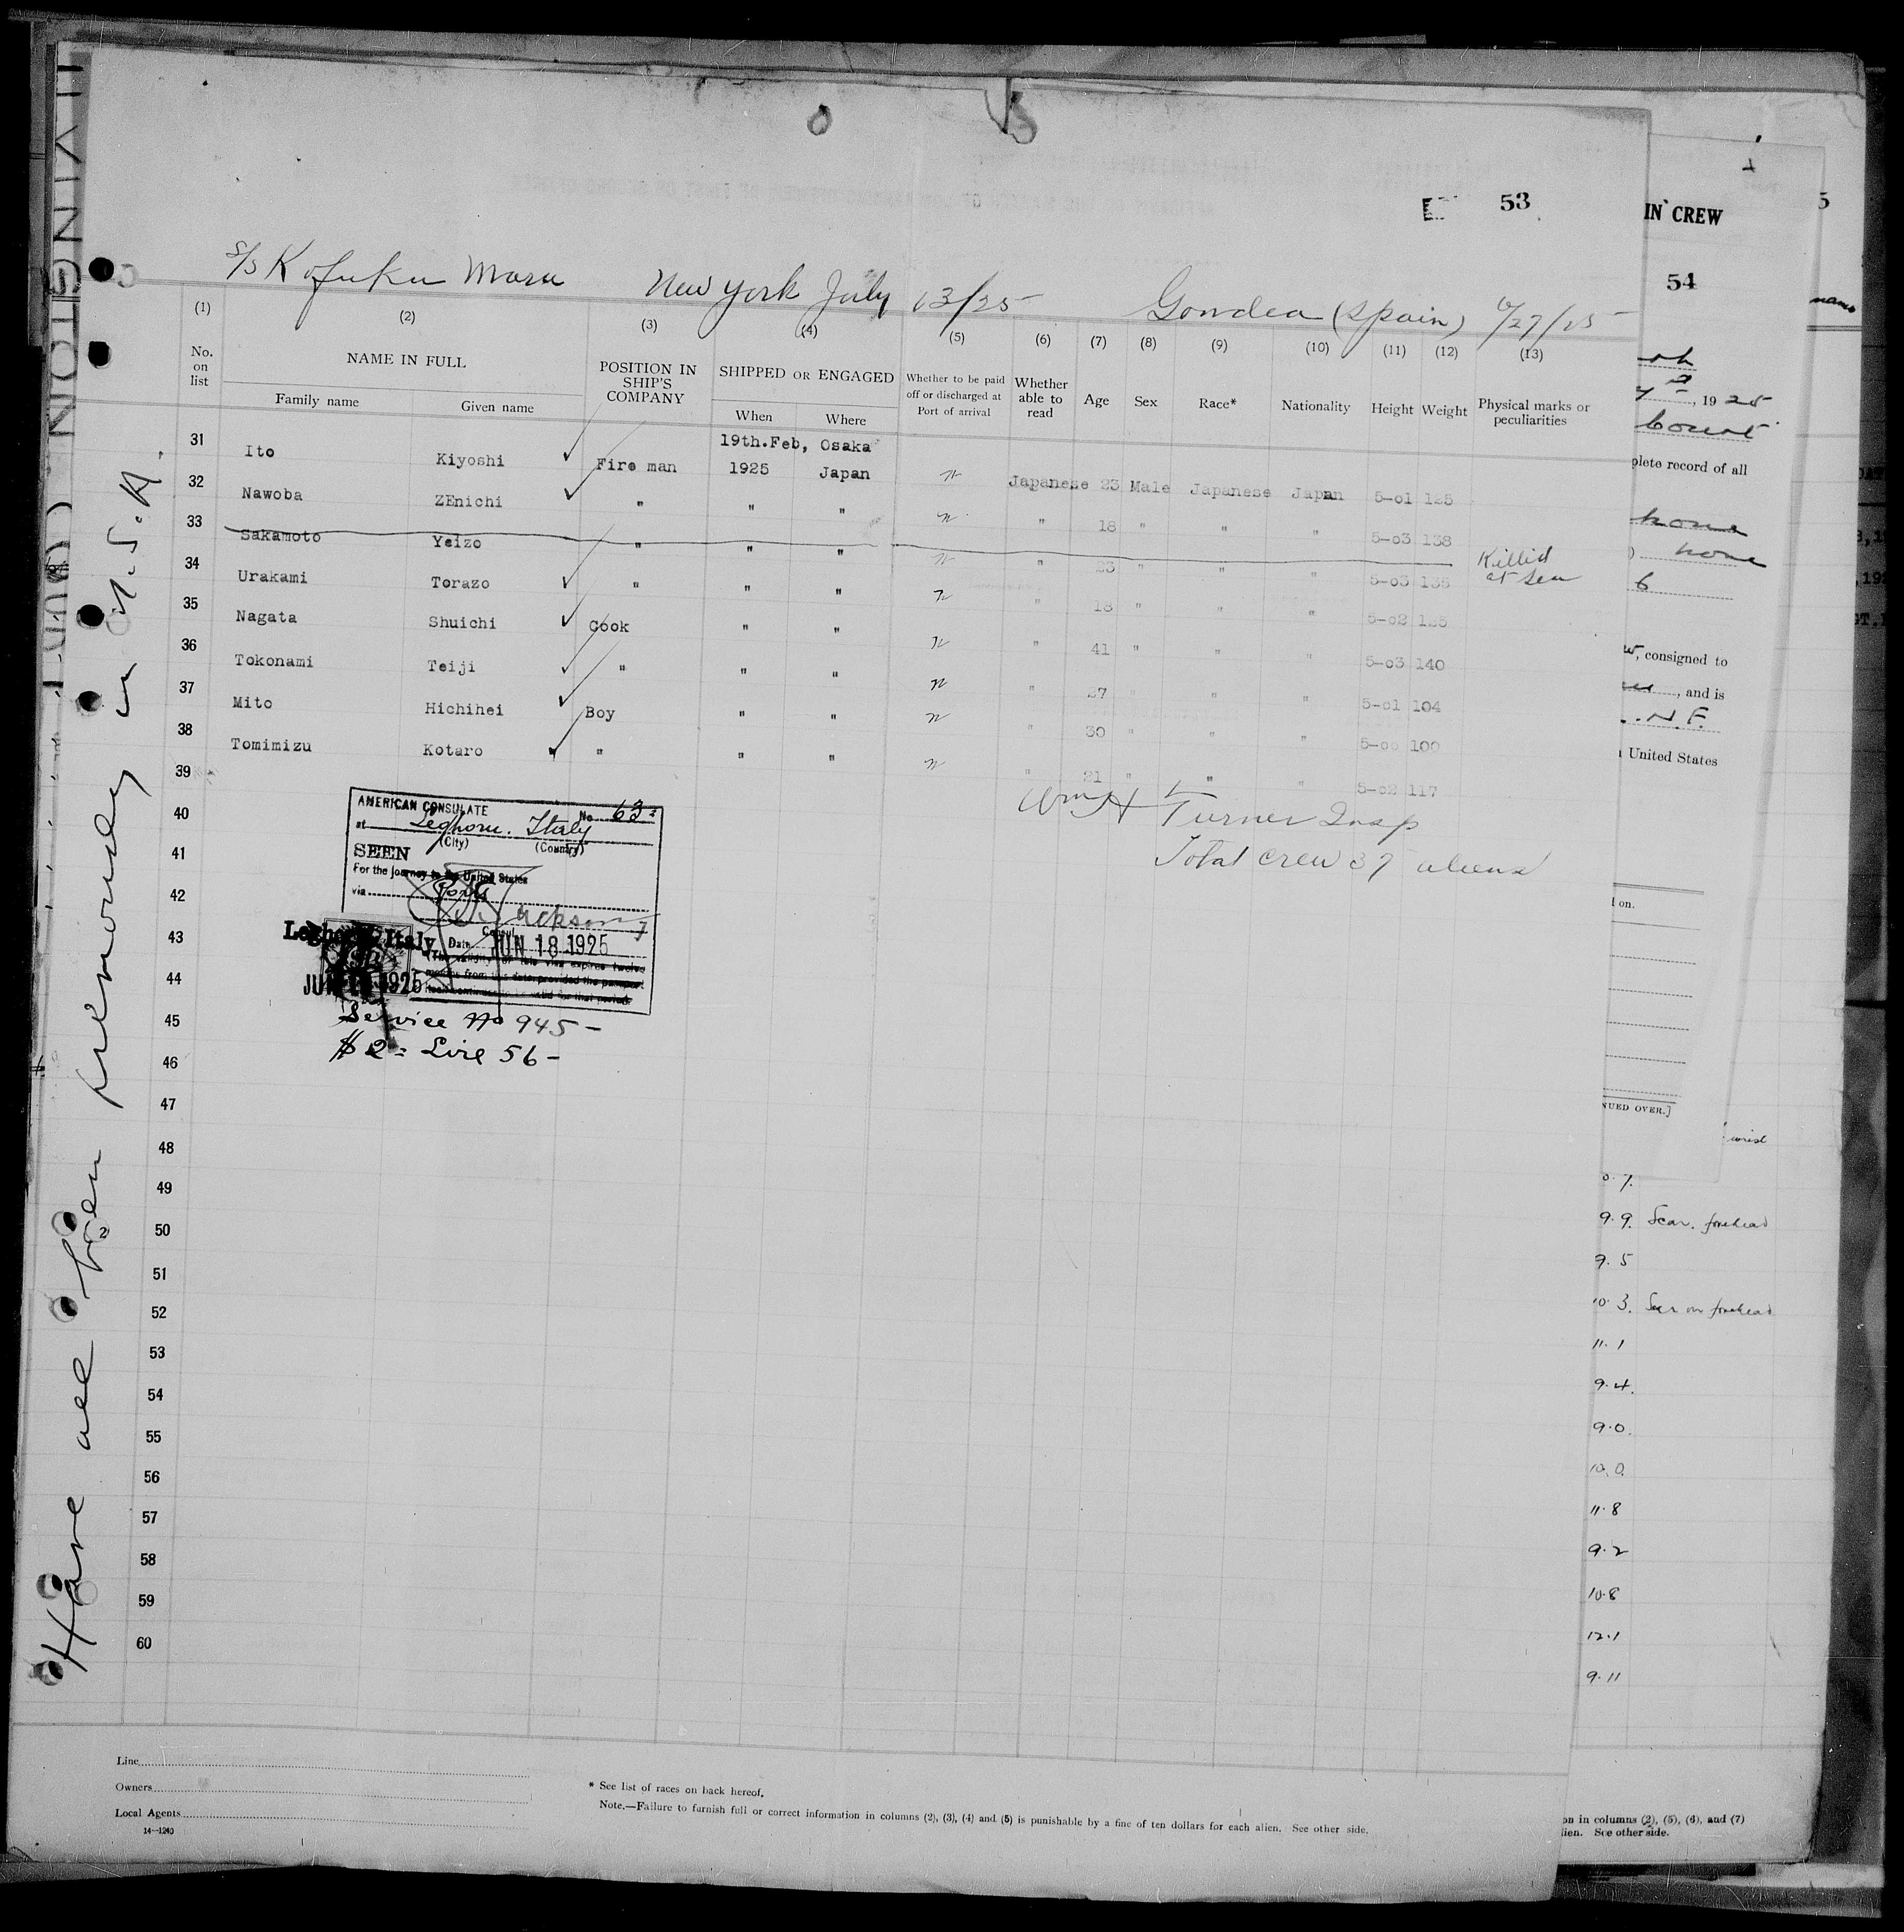 53
S/S Kofuku Maru New York July 13/25 Gondea (Spain) 6/27/25
(1) (2) (3) (4) (5) (6) (7) (8) (9) (10) (11) (12) (13)
No. on list NAME IN FULL POSITION IN SHIP'S COMPANY SHIPPED OR ENGAGED Whether to be paid off or discharged at Port of arrival Whether able to read Age Sex Race* Nationality Height Weight Physical marks or peculiarities
Family name Given name When Where
31 Ito Kiyoshi Fire man 19th.Feb, 1925 Osaka Japan n Japanese 23 Male Japanese Japan 5-01 125
32 Nawoba ZEnichi " " " n " 18 " " " 5-03 138
33 Sakamoto Yeizo " " " n " 23 " " " 5-03 135 Killed at sea
34 Urakami Torazo " " " n " 18 " " " 5-02 125
35 Nagata Shuichi Cook " " n " 41 " " " 5-03 140
36 Tokonami Teiji " " " n " 27 " " " 5-01 104
37 Mito Hichihei Boy " " n " 30 " " " 100
38 Tomimizu Kotaro " " " n " 21 " " " 5-02 117
39
40
41
42
43
44
45
46
47
48
49
50
51
52
53
54
55
56
57
58
59
60
Wm H Turner Insp
Total crew 37 aliens
AMERICAN CONSULATE No 63
at Leghorn. Italy
(City) (Country)
SEEN
For the journey to the United States
via
Jackson
Consul
Date JUN 18 1925
(The validity of this visa expires twelve
months from this date provided the passport
Leghorn, Italy
JUN 1925
Service No 945-
$2 = Lire 56-
Have all been previously in U.S.A.
Line
Owners
Local Agents
14-1240
* See list of races on back hereof.
Note.—Failure to furnish full or correct information in columns (2), (3), (4) and (5) is punishable by a fine of ten dollars for each alien. See other side.
IN CREW
54
, 19 25
plete record of all
none
none
6
, consigned to
, and is
N.F.
United States
on.
NUED OVER.]
wrist
9.9. Scar. forehead
9.5
10.3. Scar on forehead
11.1
9.4.
9.0.
10.0.
11.8
9.2
10.8
12.1
9.11
on in columns (2), (5), (6), and (7)
lien. See other side.